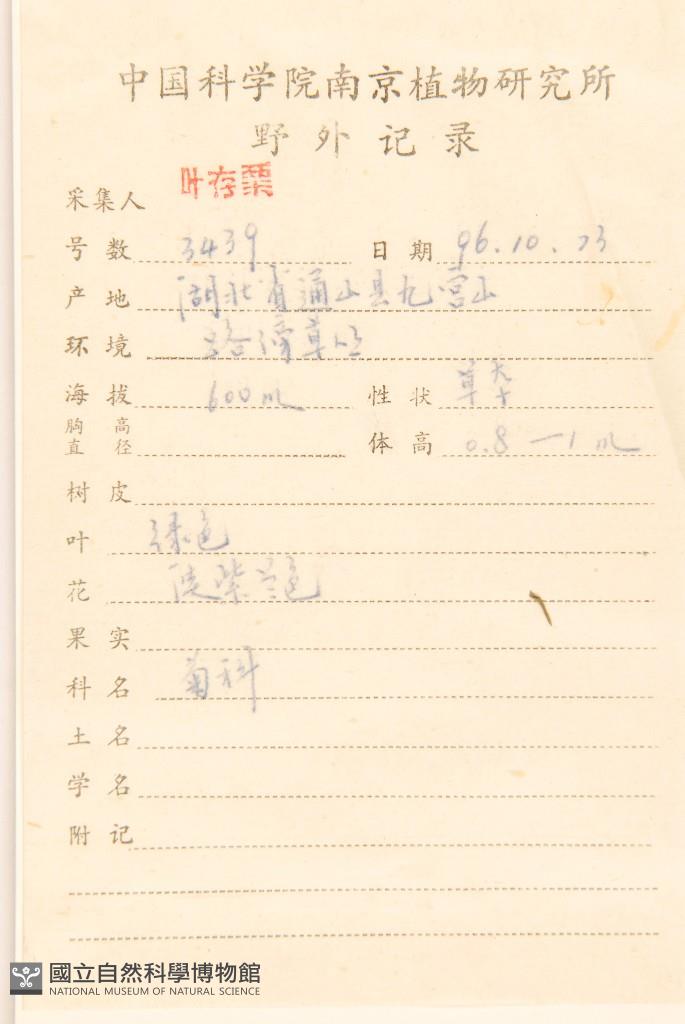 中国科学院南京植物研究所
野外记录
采集人 叶存粟
号数 3439 日期 96.10.23
产地 湖北省通山县九宫山
环境 路旁草丛
海拔 600m 性状 草本
胸高直径 体高 0.8—1m
树皮
叶 绿色
花 淡紫兰色
果实
科名 菊科
土名
学名
附记
國立自然科學博物館
NATIONAL MUSEUM OF NATURAL SCIENCE